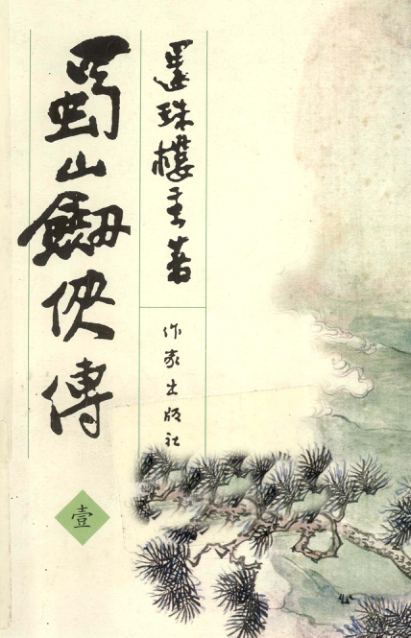 蜀山劍俠傳
還珠樓主著
作家出版社
壹